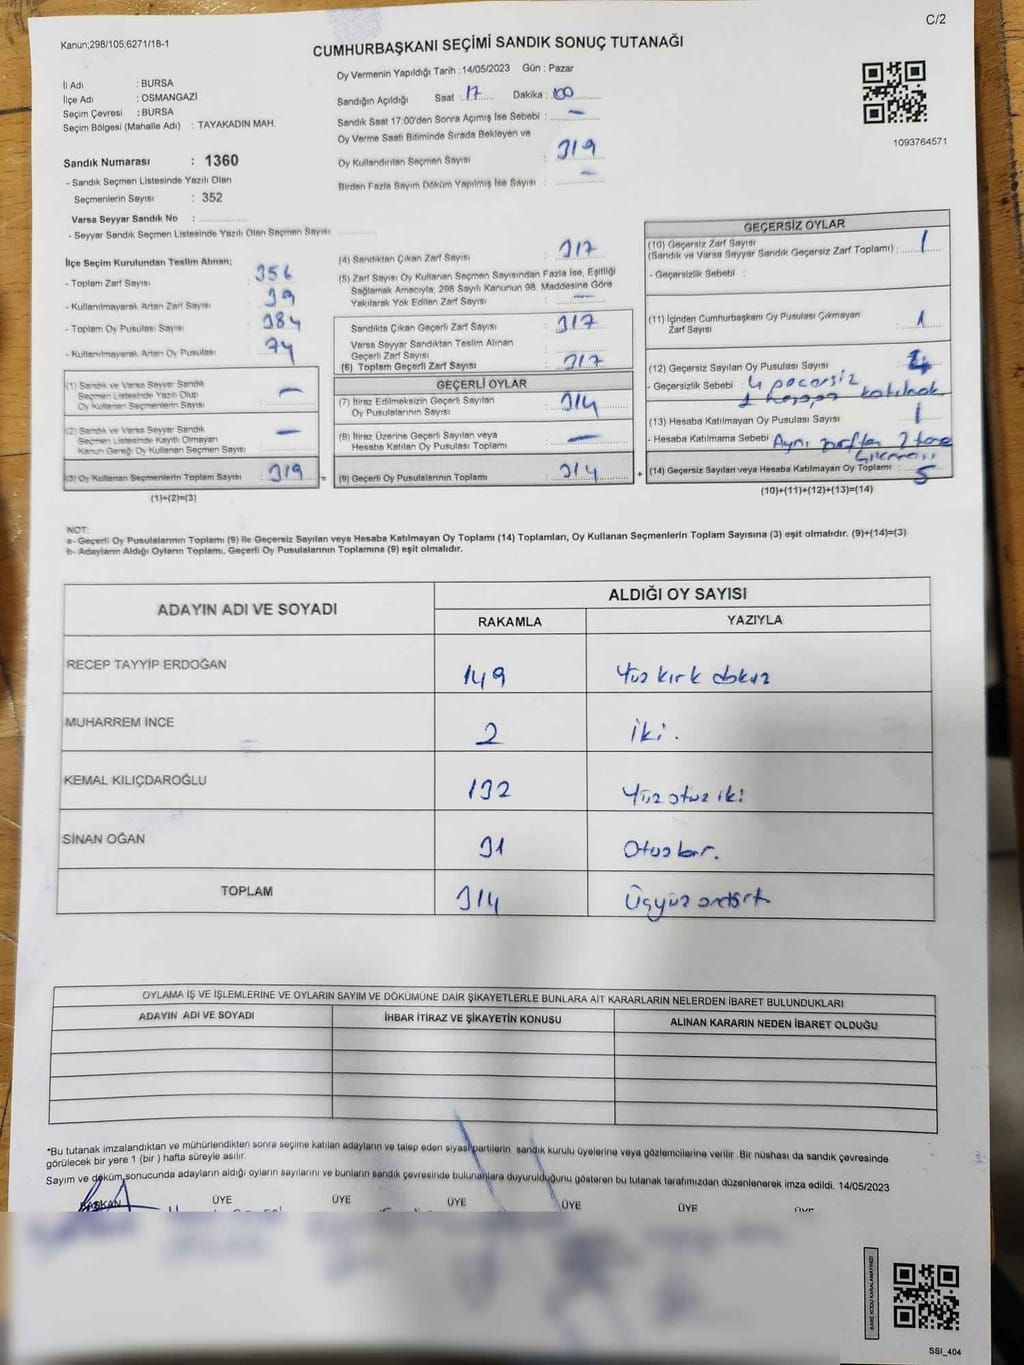 C/2
Kanun;298/105;6271/18-1
CUMHURBAŞKANI SEÇİMİ SANDIK SONUÇ TUTANAĞI
Oy Vermenin Yapıldığı Tarih : 14/05/2023 Gün : Pazar
İl Adı : BURSA
İlçe Adı : OSMANGAZİ
Seçim Çevresi : BURSA
Seçim Bölgesi (Mahalle Adı) : TAYAKADIN MAH.
Sandığın Açıldığı Saat : 17 Dakika : 00
Sandık Saat 17:00'den Sonra Açımış İse Sebebi : -
Oy Verme Saati Bitiminde Sırada Bekleyen ve
Oy Kullandırılan Seçmen Sayısı : 319
Birden Fazla Sayım Döküm Yapılmış İse Sayısı : -
1093764571
Sandık Numarası : 1360
- Sandık Seçmen Listesinde Yazılı Olan
Seçmenlerin Sayısı : 352
Varsa Seyyar Sandık No :
- Seyyar Sandık Seçmen Listesinde Yazılı Olan Seçmen Sayısı :
İlçe Seçim Kurulundan Teslim Alınan;
- Toplam Zarf Sayısı : 356
- Kullanılmayarak Artan Zarf Sayısı : 39
- Toplam Oy Pusulası Sayısı : 384
- Kullanılmayarak Artan Oy Pusulası : 74
(1) Sandık ve Varsa Seyyar Sandık
Seçmen Listesinde Yazılı Olup
Oy Kullanan Seçmenlerin Sayısı : -
(2) Sandık ve Varsa Seyyar Sandık
Seçmen Listesinde Kayıtlı Olmayan
Kanun Gereği Oy Kullanan Seçmen Sayısı : -
(3) Oy Kullanan Seçmenlerin Toplam Sayısı : 319
(1)+(2)=(3)
(4) Sandıktan Çıkan Zarf Sayısı : 317
(5) Zarf Sayısı Oy Kullanan Seçmen Sayısından Fazla İse, Eşitliği
Sağlamak Amacıyla, 298 Sayılı Kanunun 98. Maddesine Göre
Yakılarak Yok Edilen Zarf Sayısı : -
Sandıkta Çıkan Geçerli Zarf Sayısı : 317
Varsa Seyyar Sandıktan Teslim Alınan
Geçerli Zarf Sayısı :
(6) Toplam Geçerli Zarf Sayısı : 317
GEÇERLİ OYLAR
(7) İtiraz Edilmeksizin Geçerli Sayılan
Oy Pusulalarının Sayısı : 314
(8) İtiraz Üzerine Geçerli Sayılan veya
Hesaba Katılan Oy Pusulası Toplamı : -
= (9) Geçerli Oy Pusulalarının Toplamı : 314 +
GEÇERSİZ OYLAR
(10) Geçersiz Zarf Sayısı
(Sandık ve Varsa Seyyar Sandık Geçersiz Zarf Toplamı) : 1
- Geçersizlik Sebebi :
(11) İçinden Cumhurbaşkanı Oy Pusulası Çıkmayan
Zarf Sayısı : 1
(12) Geçersiz Sayılan Oy Pusulası Sayısı : 4
- Geçersizlik Sebebi : 4 geçersiz
1 hesaba katılmadı
(13) Hesaba Katılmayan Oy Pusulası Sayısı : 1
- Hesaba Katılmama Sebebi Aynı zarftan 2 tane
(14) Geçersiz Sayılan veya Hesaba Katılmayan Oy Toplamı : 5
(10)+(11)+(12)+(13)=(14)
NOT:
a- Geçerli Oy Pusulalarının Toplamı (9) ile Geçersiz Sayılan veya Hesaba Katılmayan Oy Toplamı (14) Toplamları, Oy Kullanan Seçmenlerin Toplam Sayısına (3) eşit olmalıdır. (9)+(14)=(3)
b- Adayların Aldığı Oyların Toplamı, Geçerli Oy Pusulalarının Toplamına (9) eşit olmalıdır.
ADAYIN ADI VE SOYADI ALDIĞI OY SAYISI
RAKAMLA YAZIYLA
RECEP TAYYİP ERDOĞAN 149 Yüz kırk dokuz
MUHARREM İNCE 2 iki.
KEMAL KILIÇDAROĞLU 132 Yüz otuz iki
SİNAN OĞAN 31 Otuz bir.
TOPLAM 314 Üçyüz ondört
OYLAMA İŞ VE İŞLEMLERİNE VE OYLARIN SAYIM VE DÖKÜMÜNE DAİR ŞİKAYETLERLE BUNLARA AİT KARARLARIN NELERDEN İBARET BULUNDUKLARI
ADAYIN ADI VE SOYADI İHBAR İTİRAZ VE ŞİKAYETİN KONUSU ALINAN KARARIN NEDEN İBARET OLDUĞU
*Bu tutanak imzalandıktan ve mühürlendikten sonra seçime katılan adayların ve talep eden siyasi partilerin sandık kurulu üyelerine veya gözlemcilerine verilir .Bir nüshası da sandık çevresinde
görülecek bir yere 1 (bir ) hafta süreyle asılır.
Sayım ve döküm sonucunda adayların aldığı oyların sayılarını ve bunların sandık çevresinde bulunanlara duyurulduğunu gösteren bu tutanak tarafımızdan düzenlenerek imza edildi. 14/05/2023
BAŞKAN ÜYE ÜYE ÜYE ÜYE ÜYE ÜYE
KARE KODU KARALAMAYINIZ!
SSI_404